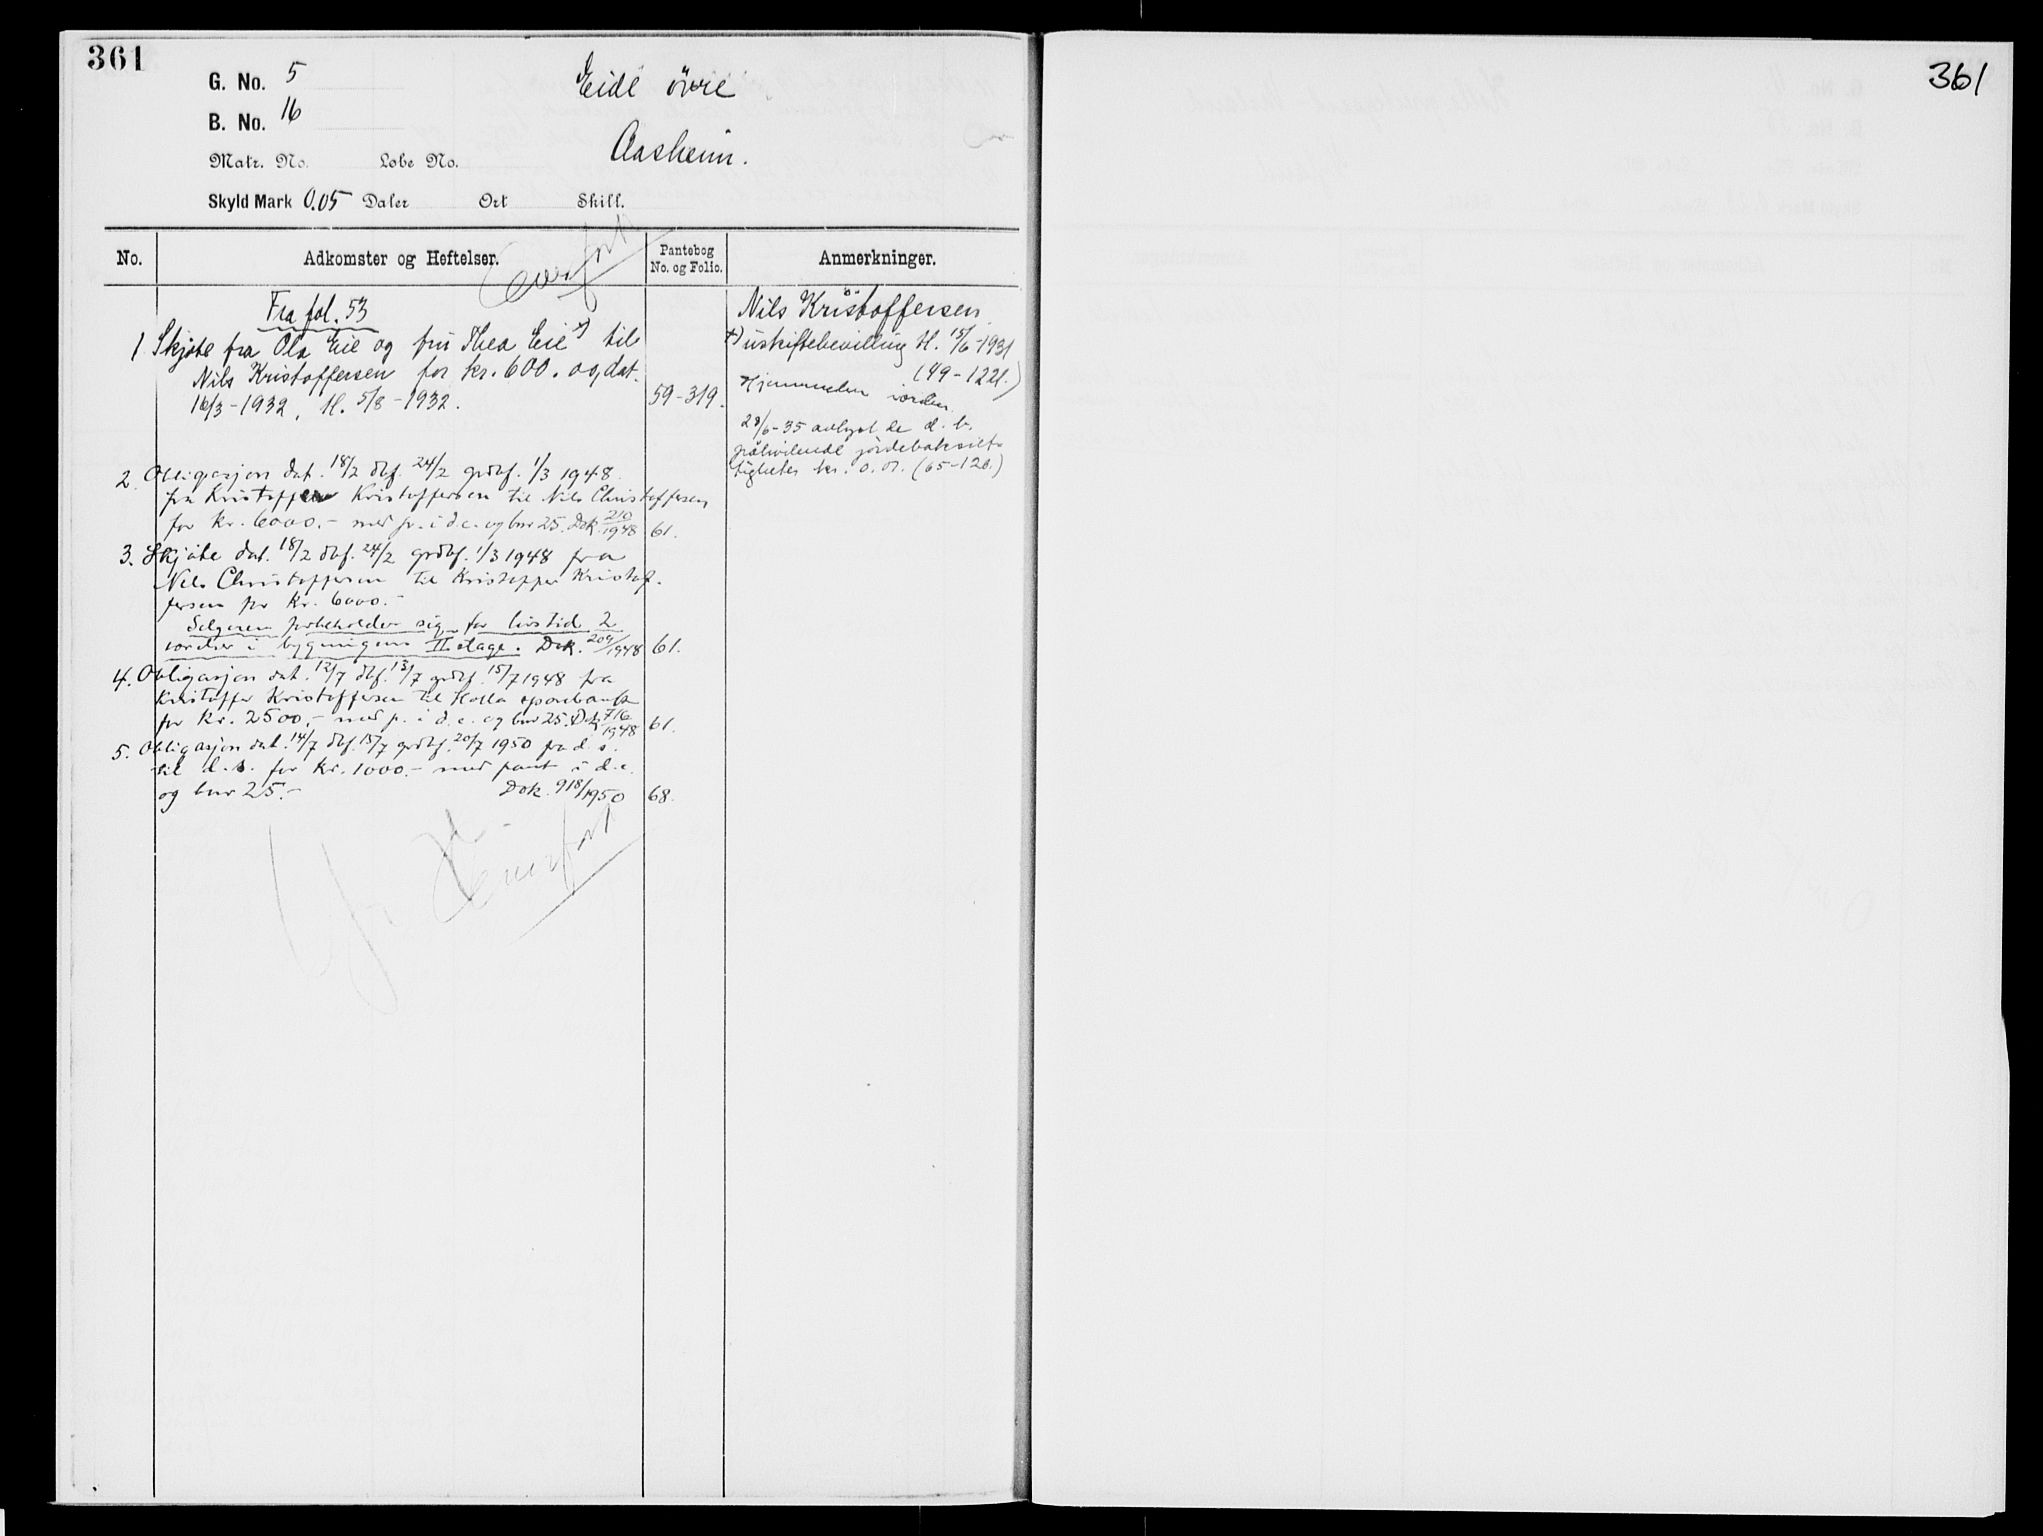 361
G. No. 5
Eide övre
B. No. 16
Aasheim.
Matr. No. Løbe No.
Skyld Mark 0.05 Daler Ort Skill.
Overført
No. Adkomster og Heftelser. Pantebog No. og Folio. Anmerkninger.
Fra fol. 53
1 Skjøte fra Ola Eie og fru Thea Eie x) til
Nils Kristoffersen for kr. 600. og dat.
16/3-1932, tl. 5/8-1932. 59-319.
2. Obligasjon dat. 18/2 dbf. 24/2 grdbf. 1/3 1948.
fra Kristoffer Kristoffersen til Nils Christoffersen
for kr. 6000.- med p. i d.e. og bnr 25. Dok. 210/1948 61.
3. Skjøte dat. 18/2 dbf. 24/2 grdbf. 1/3 1948 fra
Nils Christoffersen til Kristoffer Kristof-
fersen for kr. 6000.-
Selgeren forbeholder sig for livstid 2
værelser i bygningens II etage. Dok. 209/1948 61.
4. Obligasjon dat. 12/7 dbf. 13/7 grdbf. 15/7 1948 fra
Kristoffer Kristoffersen til Holla sparebank
for kr. 2500.- med p. i d.e. og bnr 25. Dok 716/1948 61.
5. Obligasjon dat. 14/7 dbf. 15/7 grdbf. 20/7 1950 fra d.s.
til d.s. for kr. 1000.- med pant i d.e.
og bnr 25.- Dok. 918/1950 68.
Overført
Nils Kristoffersen
x) uskiftebevilling tl. 15/6-1931
(49-1221.)
Hjemmelen i orden
28/6-35 avlyst de d. b.
påhvilende jordeboksret-
tigheter kr. 0.07. (65-126.)
361